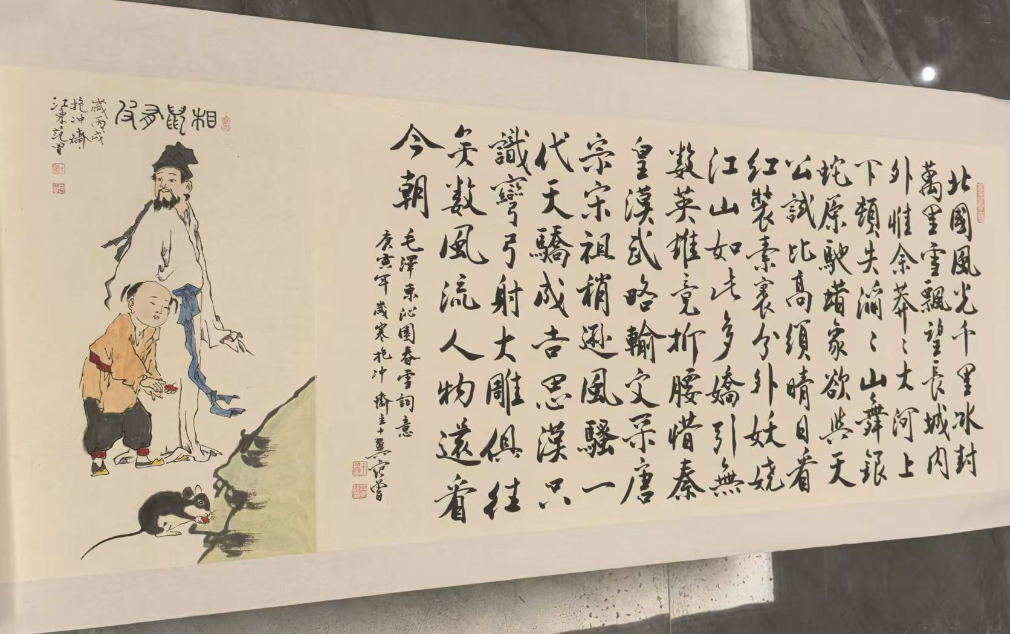 北國風光千里冰封
萬里雪飄望長城内
外惟余莽〻大河上
下頓失滔〻山舞銀
蛇原馳蜡象欲與天
公試比高須晴日看
紅裝素裹分外妖嬈
江山如此多嬌引無
數英雄竟折腰惜秦
皇漢武略輸文采唐
宗宋祖稍遜風騷一
代天驕成吉思漢只
識彎弓射大雕俱往
矣數風流人物還看
今朝
毛澤東沁園春雪詞意
庚寅年歲寒抱冲齋主十翼范曾
相鼠有皮
歲丙戌
抱冲齋
江東范曾